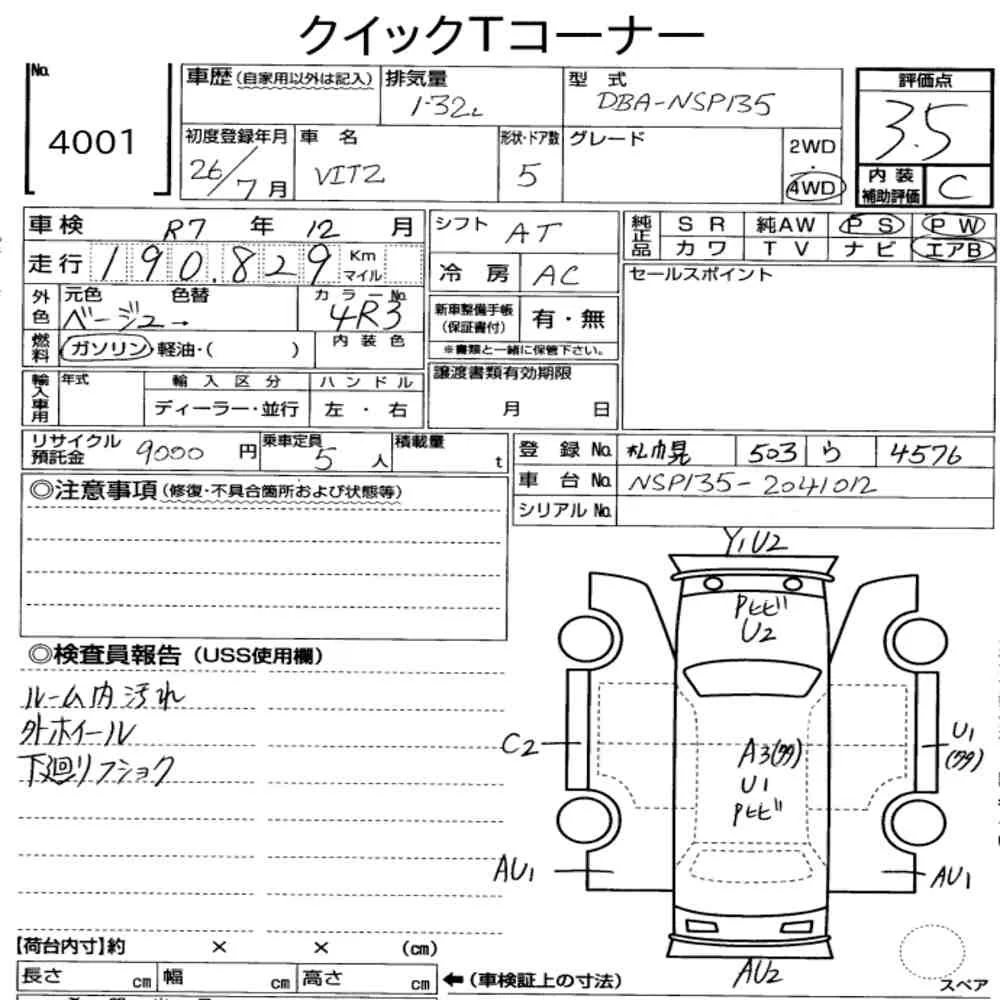 クイックTコーナー
No. 4001
車歴(自家用以外は記入) 排気量 1.32L 型式 DBA-NSP135 評価点 3.5
初度登録年月 26/7月 車名 VITZ 形状・ドア数 5 グレード 2WD・4WD 内装補助評価 C
車検 R7年12月 シフト AT 純正品 SR 純AW PS PW
カワ TV ナビ エアB
走行 190,829 Km マイル 冷房 AC セールスポイント
外色 元色 ベージュ→ 色替 カラーNo. 4R3 新車整備手帳(保証書付) 有・無
燃料 ガソリン・軽油・( ) 内装色 ※書類と一緒に保管下さい。
輸入車用 年式 輸入区分 ハンドル 譲渡書類有効期限
ディーラー・並行 左・右 月 日
リサイクル預託金 9000円 乗車定員 5人 積載量 t 登録No. 札幌 503 ら 4576
車台No. NSP135-2041012
シリアルNo.
◎注意事項(修復・不具合箇所および状態等)
◎検査員報告(USS使用欄)
ルーム内汚れ
外ホイール
下廻リフショク
Y1U2
Pヒビ
U2
C2
A3(多)
U1
Pヒビ
U1
(多)
AU1
AU1
AU2
スペア
【荷台内寸】約 × × (cm)
長さ cm 幅 cm 高さ cm ←(車検証上の寸法)